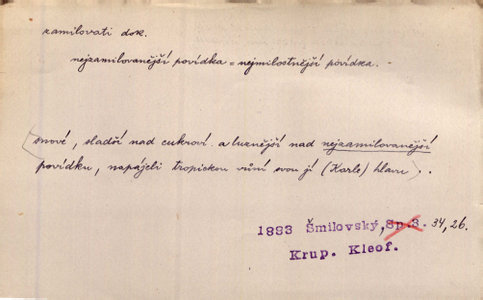 zamilovati dok.
nejzamilovanější povídka = nejmilostnější povídka. -
snové, sladší nad cukroví a luznější nad nejzamilovanější
povídku, napájeli tropickou vůní svou jí (Karle) hlavu..
1883 Šmilovský, Sp.3. 34, 26.
Krup. Kleof.